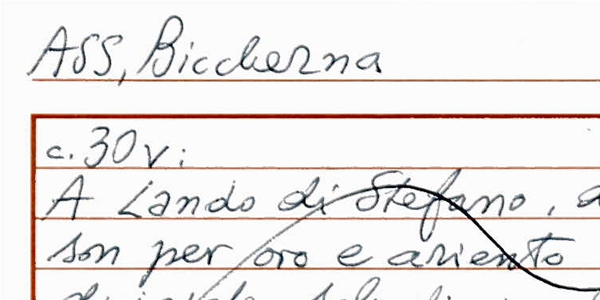 ASS, Biccherna
c. 30 v:
A Lando di Stefano,
son per oro e ariento